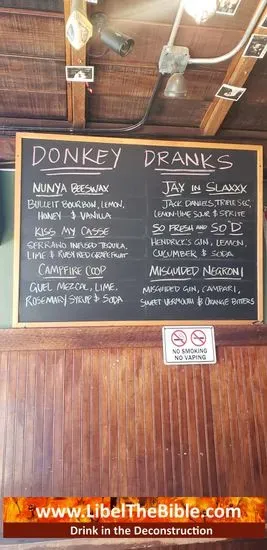 DONKEY DRANKS
NUNYA BEESWAX
BULLEIT BOURBON, LEMON,
HONEY & VANILLA
KISS MY CASSE
SERRANO INFUSED TEQUILA,
LIME & RUBY RED GRAPEFRUIT
CAMPFIRE COOP
GUEL MEZCAL, LIME,
ROSEMARY SYRUP & SODA
JAY IN SLAXXX
JACK DANIELS, TRIPLE SEC,
LEMON-LIME SOUR & SPRITE
SO FRESH AND SO 'D'
HENDRICK'S GIN, LEMON,
CUCUMBER & SODA
MISGUIDED NEGRONI
MISGUIDED GIN, CAMPARI,
SWEET VERMOUTH & ORANGE BITTERS
NO SMOKING
NO VAPING
www.LibelTheBible.com
Drink in the Deconstruction